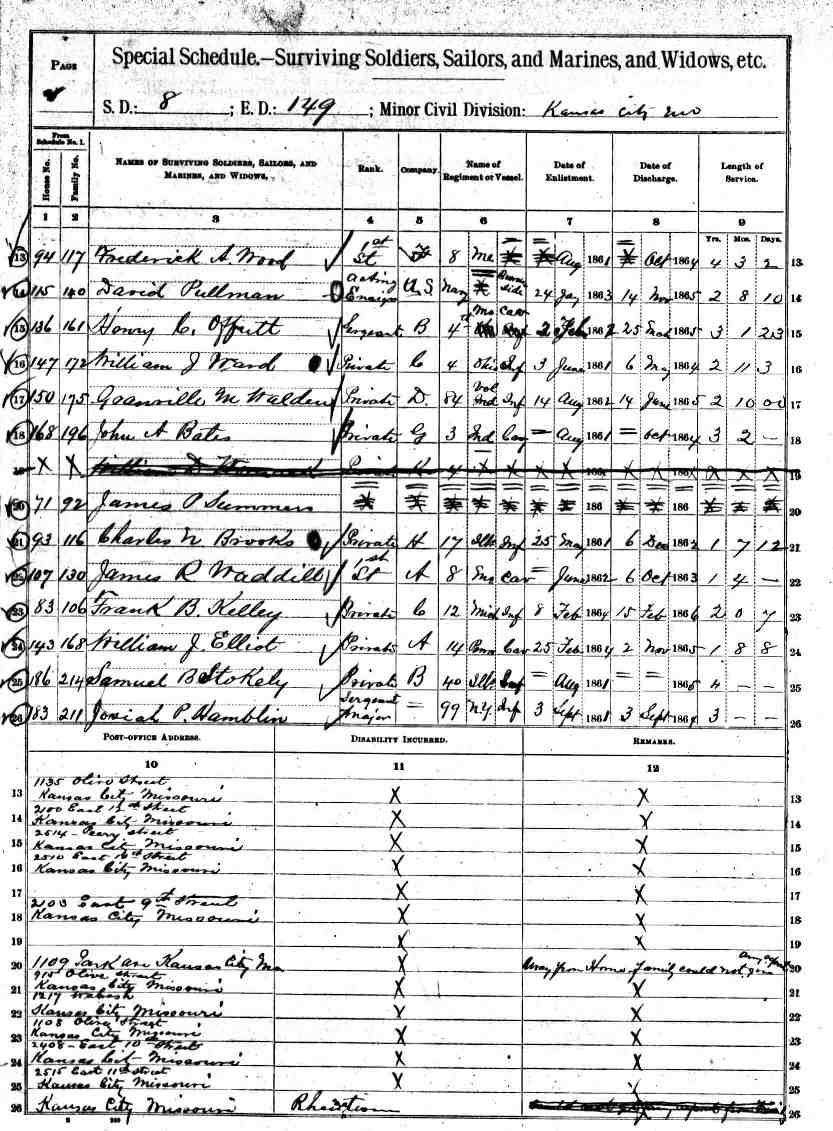 Special Schedule.—Surviving Soldiers, Sailors, and Marines, and Widows, etc.
PAGE
S. D.: 8 ; E. D.: 149 ; Minor Civil Division: Kansas City Mo
From Schedule No. 1.
House No. Family No. NAMES OF SURVIVING SOLDIERS, SAILORS, AND MARINES, AND WIDOWS. Rank. Company. Name of Regiment or Vessel. Date of Enlistment. Date of Discharge. Length of Service.
1 2 3 4 5 6 7 8 9
Yrs. Mos. Days.
13 94 117 Frederick A. Wood 1st St 8 Me Aug 1861 Oct 1864 4 3 2 13
115 140 David Pullman Acting Ensign U.S. Navy 24 Jay 1863 14 Nov 1865 2 8 10 14
15 136 161 Henry C. Offutt Sergeant B 4th Mo Cav 2 Feb 1862 25 Mch 1865 3 1 23 15
16 147 172 William J Ward Private C 4 Ohio Inf 3 June 1861 6 May 1864 2 11 3 16
17 150 175 Granville M Walden Private D. 84 Ind Vol Inf 14 Aug 1862 14 June 1865 2 10 00 17
18 168 196 John A Bates Private G 3 Ind Cav = Aug 1861 = Oct 1864 3 2 - 18
19 X X X X X X X X X X X 19
20 71 92 James P Summers 186 186 20
21 93 116 Charles N Brooks Private H 17 Ills Inf 25 May 1861 6 Dec 1862 1 7 12 21
22 107 130 James R Waddill 1st St A 8 Mo Cav = June 1862 6 Oct 1863 1 4 - 22
23 83 106 Frank B. Kelley Private C 12 Mich Inf 8 Feb 1864 15 Feb 1866 2 0 7 23
24 143 168 William J. Elliot Private A 14 Penn Cav 25 Feb 1864 2 Nov 1865 1 8 8 24
25 186 214 Samuel B Stokely Private B 40 Ills Inf = Aug 1861 = = 1865 4 - - 25
26 83 211 Josiah P. Hamblin Sergeant Major = 99 N.Y. Inf 3 Sept 1861 3 Sept 1864 3 - - 26
POST-OFFICE ADDRESS. DISABILITY INCURRED. REMARKS.
10 11 12
1135 Olive Street
13 Kansas City Missouri X X 13
2100 East 12th Street
14 Kansas City Missouri X X 14
2514 - Peery Street
15 Kansas City Missouri X X 15
2510 East 16th Street
16 Kansas City Missouri X X 16
17 X X 17
2103 East 9th Street
18 Kansas City Missouri X X 18
19 X X 19
20 1109 Park Ave Kansas City Mo X Away from Home. Family could not give 20
915 Olive Street
21 Kansas City Missouri X X 21
1217 Wabash
22 Kansas City Missouri X X 22
1108 Olive Street
23 Kansas City Missouri X X 23
2408 - East 10th Street
24 Kansas City Missouri X X 24
2515 East 11th Street
25 Kansas City Missouri X X 25
26 Kansas City Missouri 26